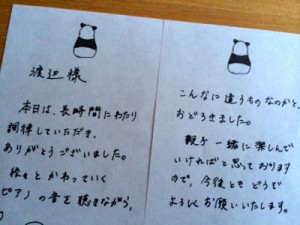 渡辺様
本日は、長時間にわたり
調律していただき、
ありがとうございました。
徐々とかわっていく
ピアノの音を聴きながら、
こんなに違うものなのかと、
おどろきました。
親子一緒に楽しんで
いければと思っております
ので、今後ともどうぞ
よろしくお願いいたします。